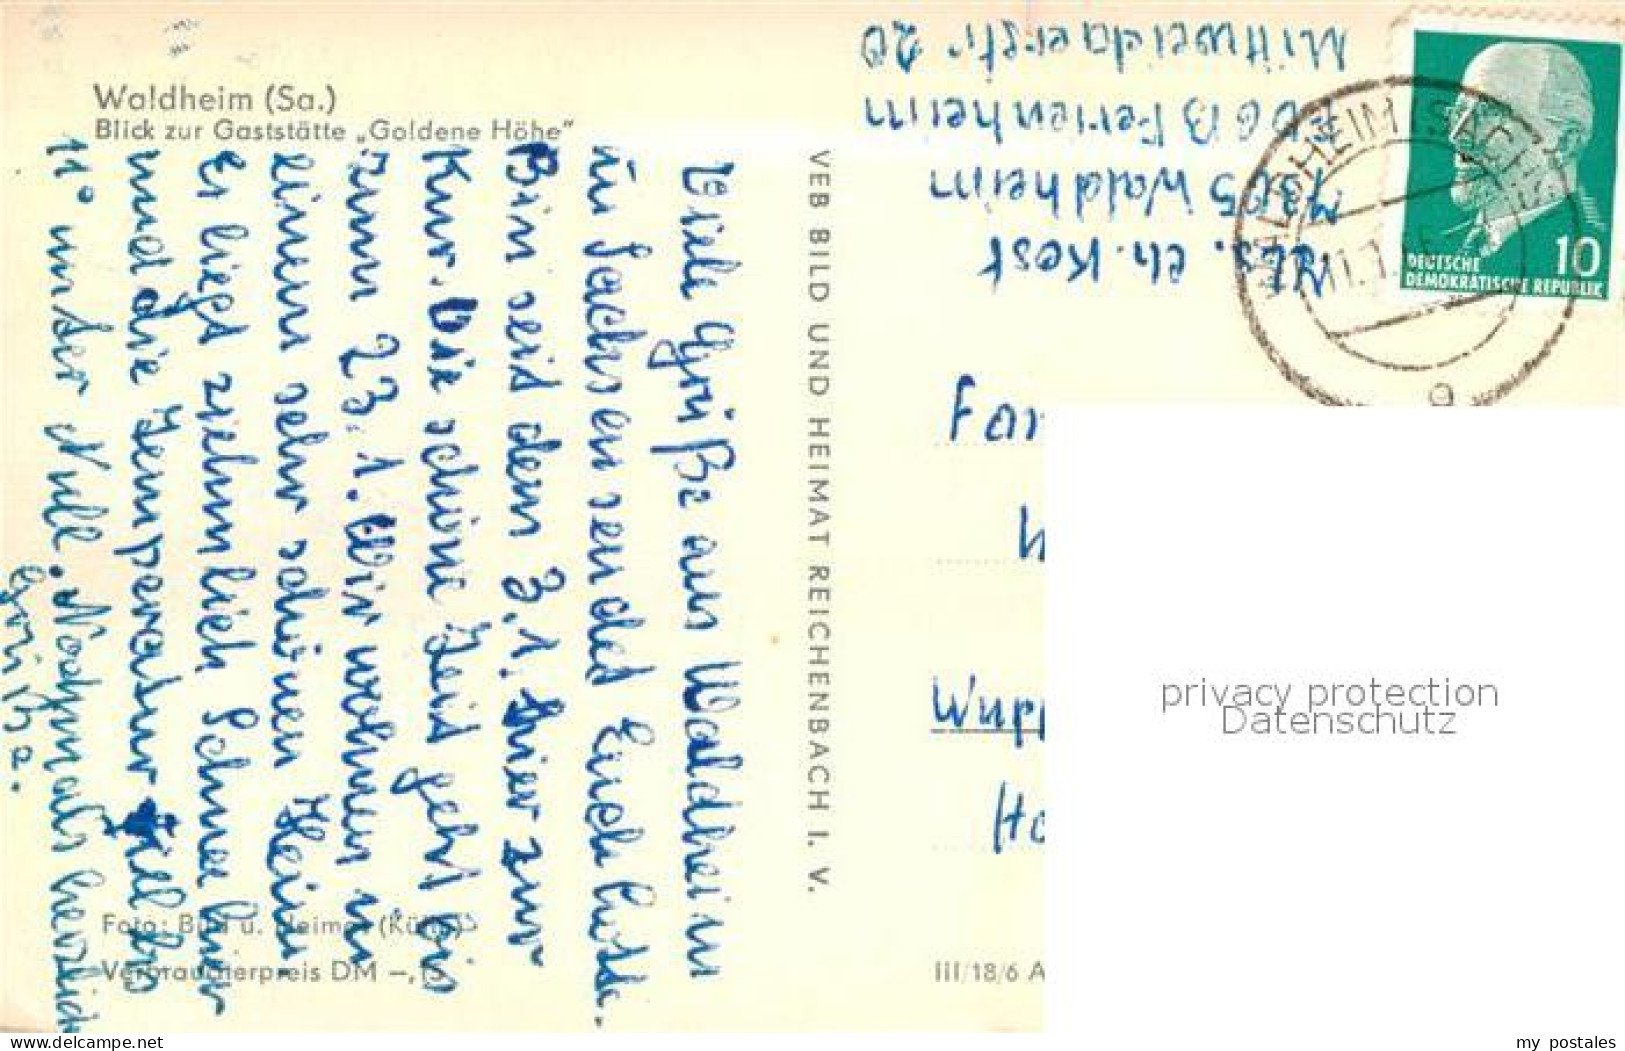 Waldheim (Sa.)
Blick zur Gaststätte „Goldene Höhe"
Viele Grüße aus Waldheim
in Sachsen sendet Euch Lotte.
Bin seid dem 3.1. hier zur
Kur. Die schöne Zeit geht bis
zum 23.1. Wir wohnen in
einem sehr schönen Heim
Es liegt ziehmlich Schnee hier
und die Temperatur fiel bis
11° unter Null. Nochmals herzlich
Grüße.
Foto: Bild u. Heimat (Kühn)
Verbraucherpreis DM –,15
VEB BILD UND HEIMAT REICHENBACH I. V.
Abs. Ch. Kost
7305 Waldheim
FDGB Ferienheim
Mittweidaerstr 20
WALDHEIM (SACHS
11.1.
g
10
DEUTSCHE
DEMOKRATISCHE REPUBLIK
Fam
W
Wupp
Ho
III/18/6 A
privacy protection
Datenschutz
www.delcampe.net
my_postales